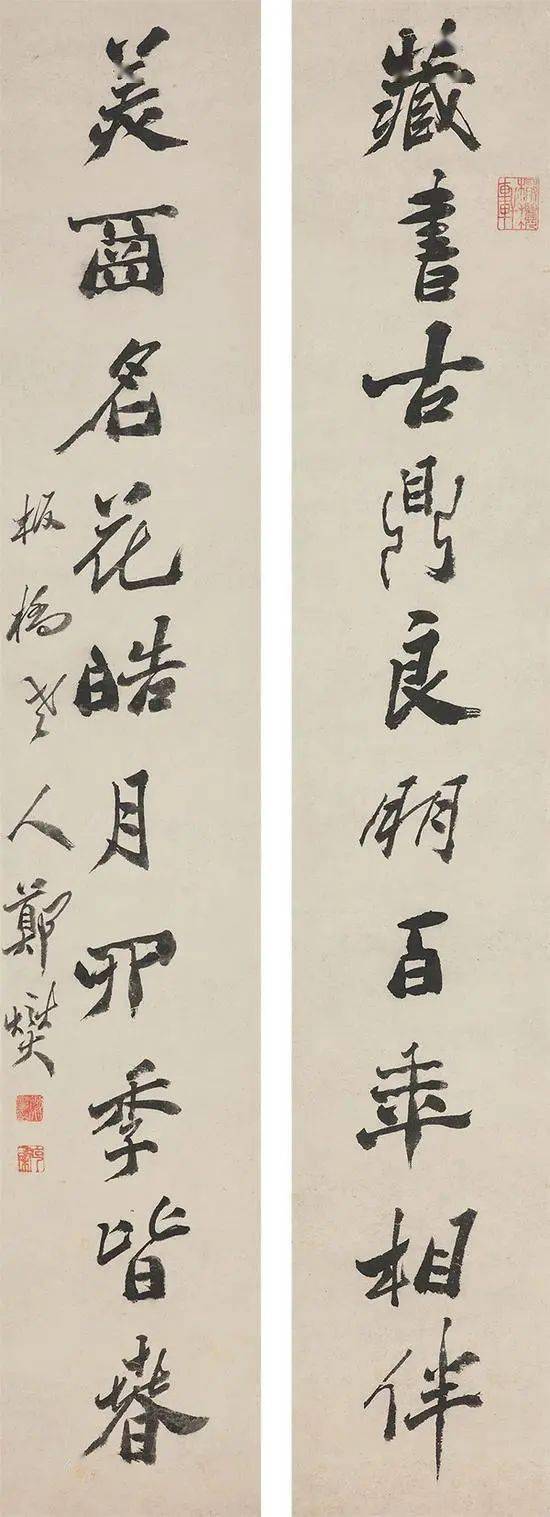 藏書古鼎良朋百年相伴
美名花皓月四季皆春
板橋老人鄭燮